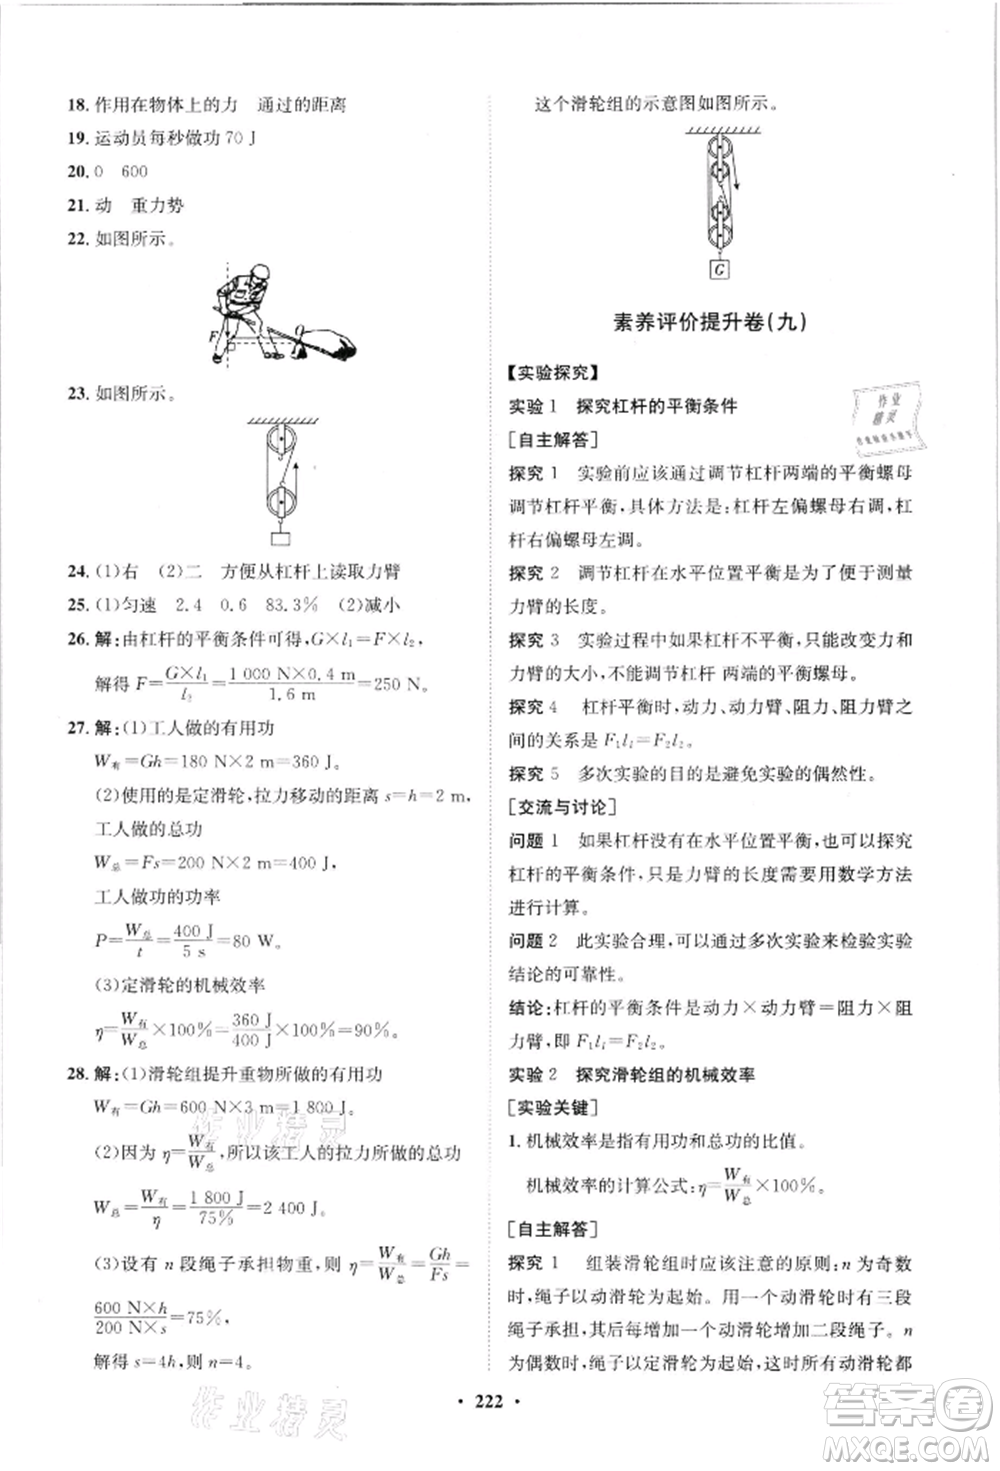 18. 作用在物体上的力　通过的距离
19. 运动员每秒做功 70 J
20. 0　600
21. 动　重力势
22. 如图所示。
F
23. 如图所示。
24. (1)右　(2)二　方便从杠杆上读取力臂
25. (1)匀速　2.4　0.6　83.3%　(2)减小
26. 解:由杠杆的平衡条件可得,G×l₁=F×l₂,
解得 F=(G×l₁)/l₂=(1 000 N×0.4 m)/(1.6 m)=250 N。
27. 解:(1)工人做的有用功
W有=Gh=180 N×2 m=360 J。
(2)使用的是定滑轮,拉力移动的距离 s=h=2 m,
工人做的总功
W总=Fs=200 N×2 m=400 J,
工人做功的功率
P=W总/t=400 J/5 s=80 W。
(3)定滑轮的机械效率
η=W有/W总×100%=360 J/400 J×100%=90%。
28. 解:(1)滑轮组提升重物所做的有用功
W有=Gh=600 N×3 m=1 800 J。
(2)因为 η=W有/W总,所以该工人的拉力所做的总功
W总=W有/η=1 800 J/75%=2 400 J。
(3)设有 n 段绳子承担物重,则 η=W有/W总=Gh/Fs=
(600 N×h)/(200 N×s)=75%,
解得 s=4h,则 n=4。
这个滑轮组的示意图如图所示。
G
素养评价提升卷(九)
【实验探究】
实验 1　探究杠杆的平衡条件
[自主解答]
探究 1　实验前应该通过调节杠杆两端的平衡螺母
调节杠杆平衡,具体方法是:杠杆左偏螺母右调,杠
杆右偏螺母左调。
探究 2　调节杠杆在水平位置平衡是为了便于测量
力臂的长度。
探究 3　实验过程中如果杠杆不平衡,只能改变力和
力臂的大小,不能调节杠杆 两端的平衡螺母。
探究 4　杠杆平衡时,动力、动力臂、阻力、阻力臂之
间的关系是 F₁l₁=F₂l₂。
探究 5　多次实验的目的是避免实验的偶然性。
[交流与讨论]
问题 1　如果杠杆没有在水平位置平衡,也可以探究
杠杆的平衡条件,只是力臂的长度需要用数学方法
进行计算。
问题 2　此实验合理,可以通过多次实验来检验实验
结论的可靠性。
结论:杠杆的平衡条件是动力×动力臂=阻力×阻力
臂,即 F₁l₁=F₂l₂。
实验 2　探究滑轮组的机械效率
[实验关键]
1. 机械效率是指有用功和总功的比值。
机械效率的计算公式:η=W有/W总×100%。
[自主解答]
探究 1　组装滑轮组时应该注意的原则:n 为奇数
时,绳子以动滑轮为起始。用一个动滑轮时有三段
绳子承担,其后每增加一个动滑轮增加二段绳子。n
为偶数时,绳子以定滑轮为起始,这时所有动滑轮都
· 222 ·
作业
精灵
作业精灵
作业精灵
答案圈
MXQE.COM